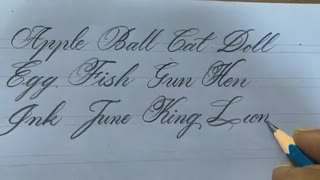 Apple Ball Cat Doll
Egg Fish Gun Hen
Ink June King Lion